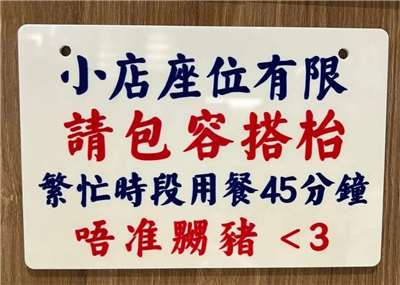 小店座位有限
請包容搭枱
繁忙時段用餐45分鐘
唔准嬲豬 <3